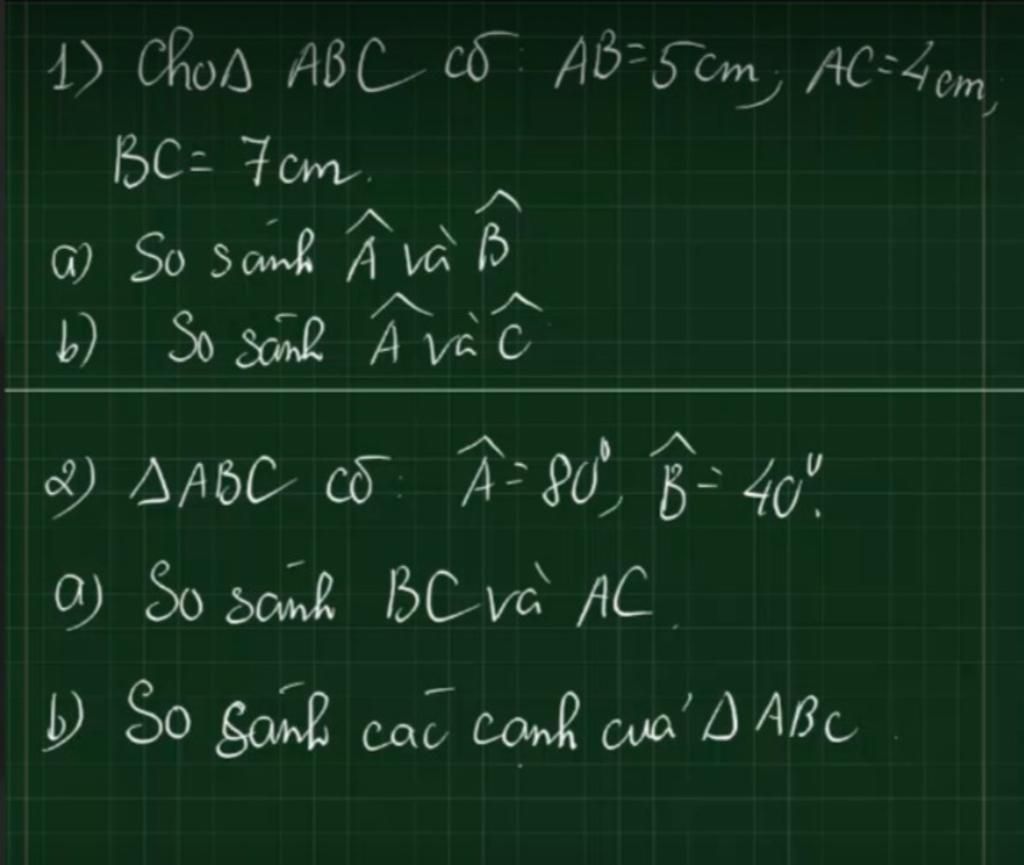 1) Cho Δ ABC có: AB = 5cm; AC = 4cm;
BC = 7cm.
a) So sánh Â và B̂
b) So sánh Â và Ĉ
2) ΔABC có: Â = 80°, B̂ = 40°.
a) So sánh BC và AC.
b) So sánh các cạnh của Δ ABC.